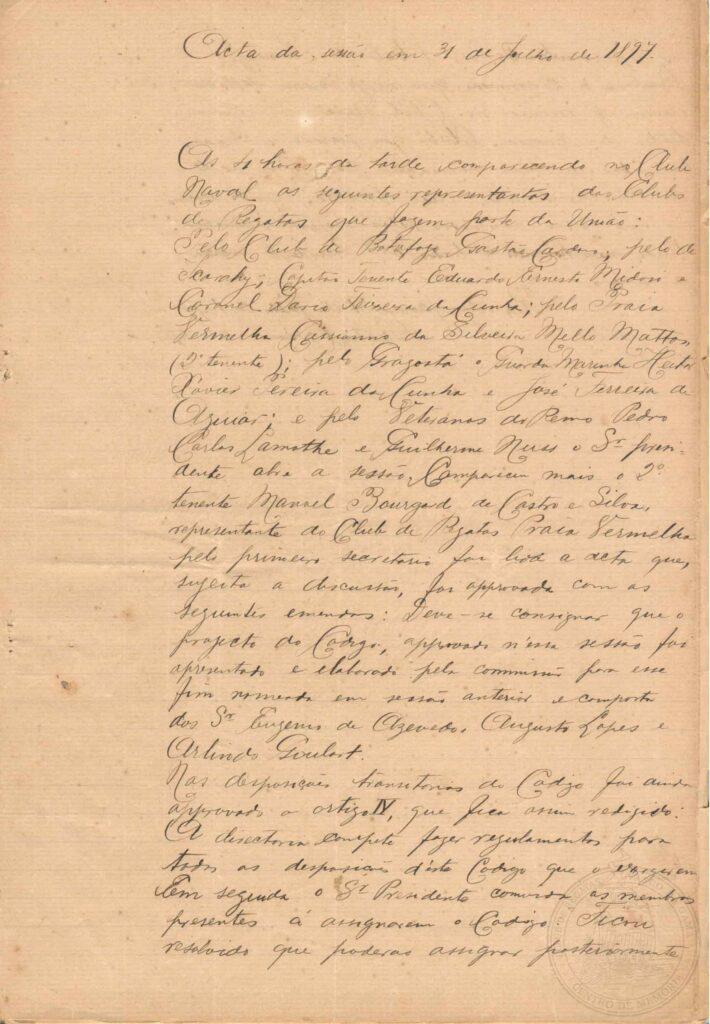 Acta da sessão em 31 de Julho de 1897.
As 4 horas da tarde comparecendo no Club
Naval os seguintes representantes dos Clubs
de Regatas que fazem parte da União:
Pelo Club de Botafogo Gastão Cardoso; pelo de
Icarahy, Capitão Tenente Eduardo Ernesto Midosi e
Coronel Dario Teixeira da Cunha; pelo Praia
Vermelha Cassianno da Silveira Mello Mattos,
(2º tenente); pelo Gragoatá o Guarda Marinha Heitor
Xavier Pereira da Cunha e José Ferreira de
Aguiar; e pelo Veteranos do Remo Pedro
Carlos Lamothe e Guilherme o Sr. presi-
dente abra a sessão. Comparecem mais o 2º
tenente Manoel de Castro e Silva,
representante do Club de Regatas Praia Vermelha
pelo primeiro secretario foi lida a acta que,
sugeita a discussão, foi approvada com as
seguintes emendas: Deve-se consignar que o
projecto do Codigo, approvado n'essa sessão foi
apresentado e elaborado pela commissão para esse
fim nomeada em sessão anterior e composta
dos Srs. Eugenio de Azevedo, Augusto Lopes e
Arlindo Goulart.
Nas desposições transitorias do Codigo foi ainda
approvado o artigo IV, que fica assim redigido:
A directoria compete fazer regulamentos para
todas as desposições d'este Codigo que o
Em seguida o Sr. Presidente convida os membros
presentes á assignarem o Codigo. Ficou
resolvido que poderão assignar posteriormente
CENTRO DE MEMORIA